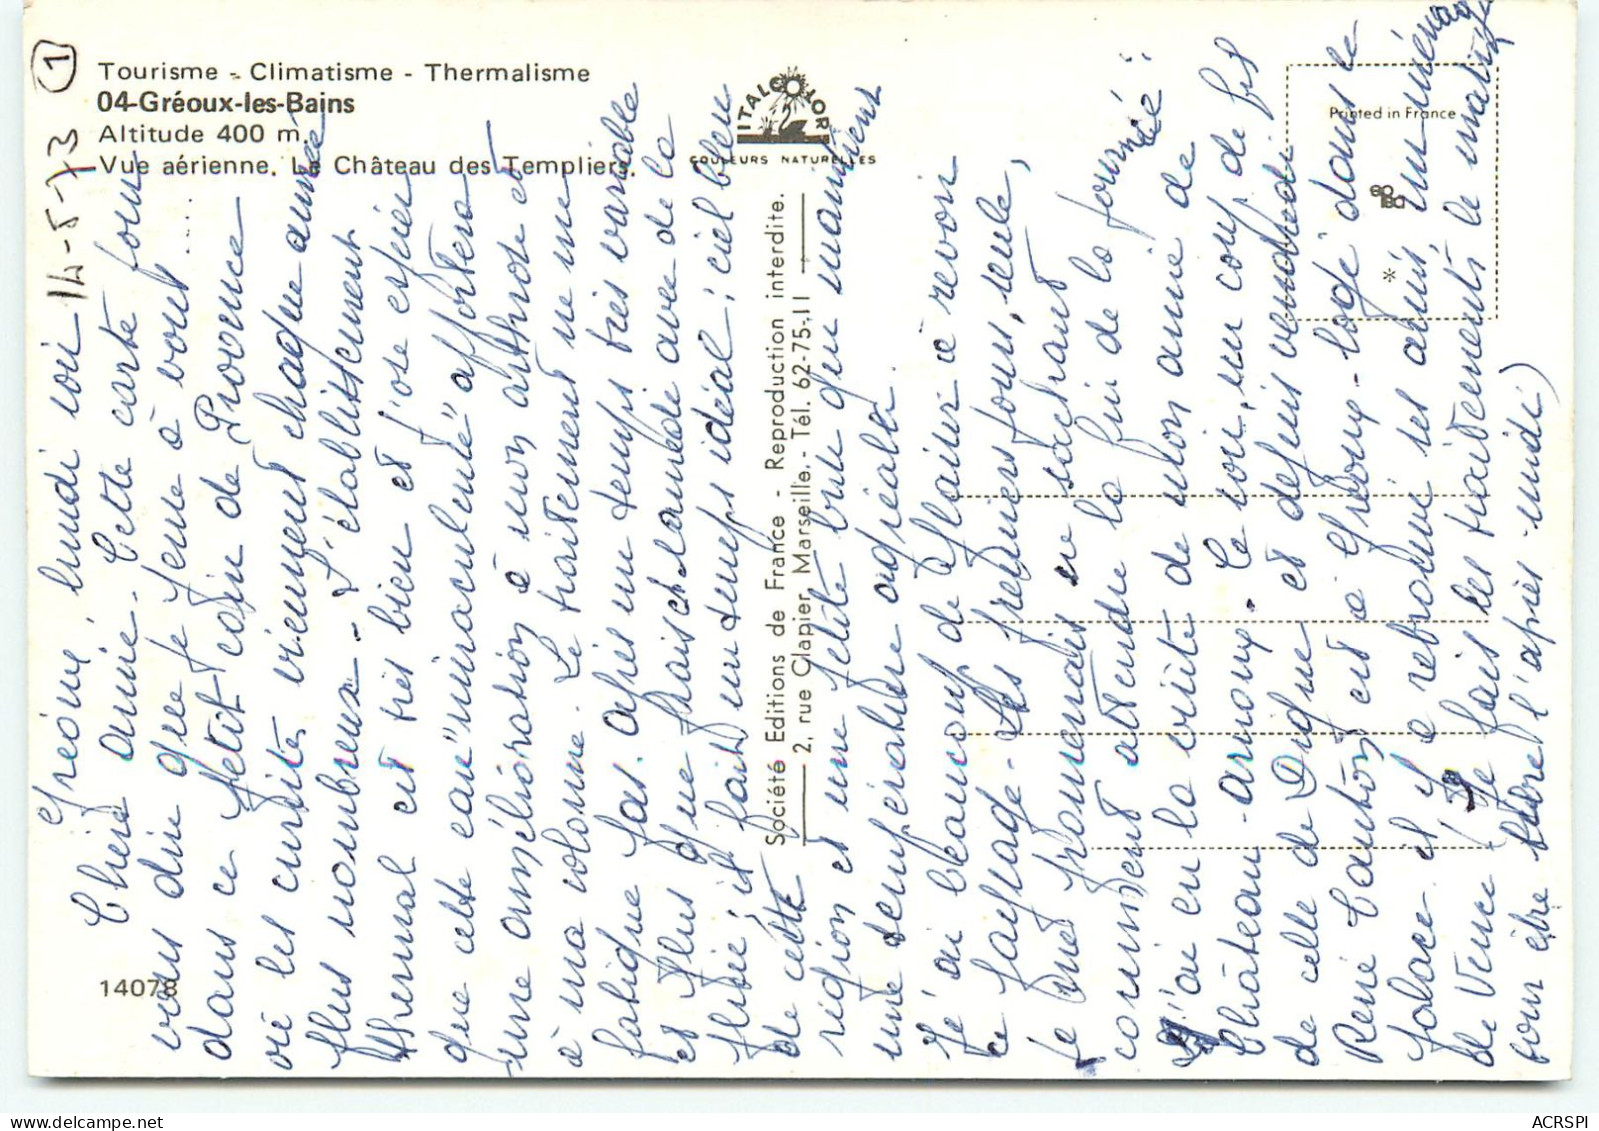 1
Tourisme - Climatisme - Thermalisme
04-Gréoux-les-Bains
Altitude 400 m.
Vue aérienne. Le Château des Templiers.
ITALCOLOR
COULEURS NATURELLES
Printed in France
*
Société Editions de France - Reproduction interdite.
2, rue Clapier, Marseille. - Tél. 62-75-11
14078
Gréoux, lundi soir 14-5-73
Chère amie. Cette carte pour
vous dire que je pense à vous ....
dans ce petit coin de Provence
où les curistes viennent chaque année
plus nombreux - L'établissement
thermal est très bien et j'ose espérer
que cette eau "miraculeuse" apportera
une amélioration à mon arthrose et
à ma colonne. Le traitement ne me
fatigue pas. Après un temps très variable
et plus que frais, et lamède avec de la
pluie, il fait un temps idéal ; ciel bleu
de cette
région et une petite brise qui maintient
une température agréable.
J'ai beaucoup de plaisir à revoir
ce paysage - les premiers jours, seule,
je me promenais ne sachant
comment attendre la fin de la journée :
J'ai eu la visite de mon amie de
Château-Arnoux. Ce soir, un coup de fil
de celle de Digne et depuis vendredi
René Cauton est à Gréoux - logé dans le
palace et y retrouve ses amis, un ménage
de Vence (je fais les traitements le matin
pour être libre l'après-midi)
ACRSPI